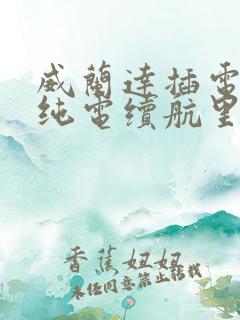 威蘭達插電
纯電續航里
香蕉妞妞
未经同意禁止转载